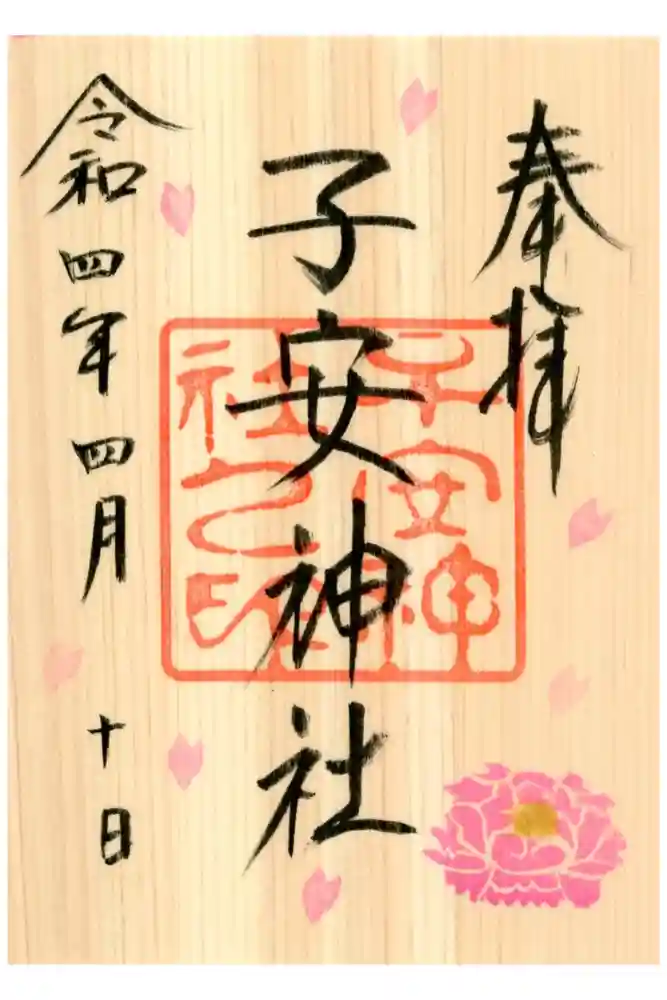 奉拝
子安神社
子安神
社之印
令和四年四月十日